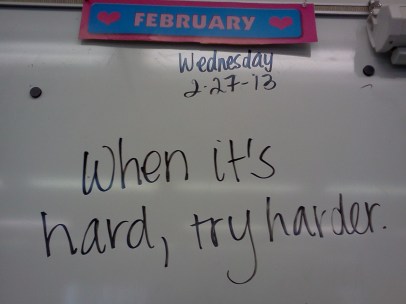 FEBRUARY
Wednesday
2-27-13
When it's
hard, try harder.